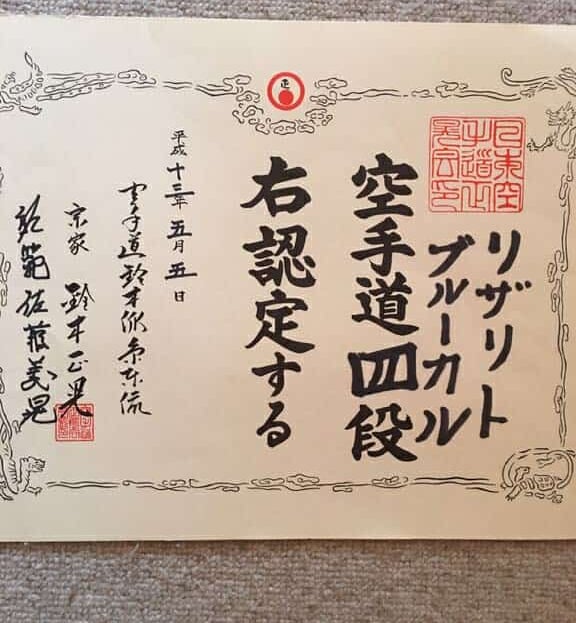 正
リザリト
ブルーカル
空手道四段
右認定する
平成十三年五月五日
空手道鈴木派糸東流
宗家 鈴木正晃
佐藤美晃